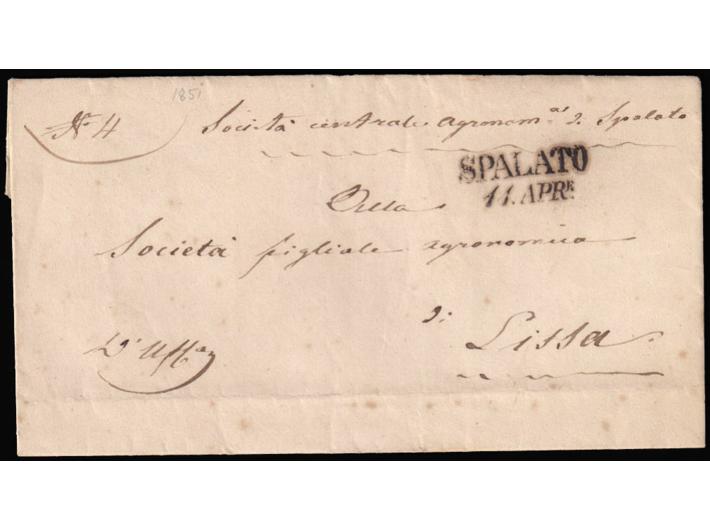 1851
N. 4 Società centrale agronom.ca di Spalato
SPALATO
11. APR.E
Alla
Società figliale agronomica
di
Lissa
D'Uff.o